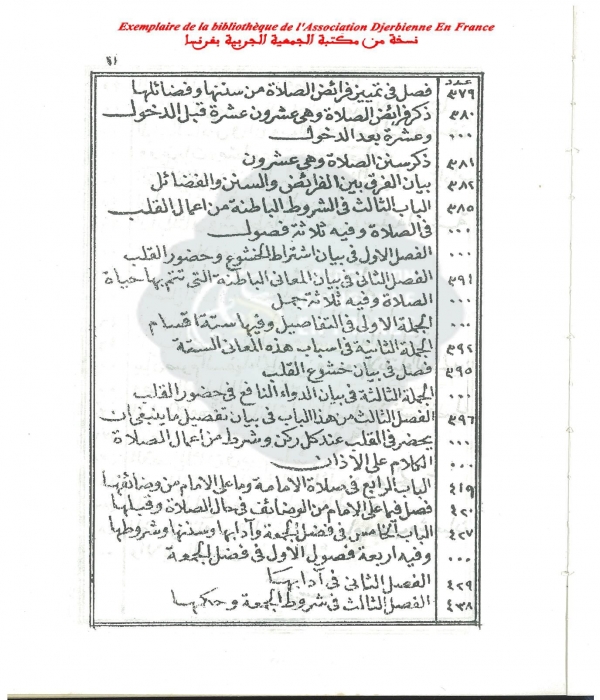 Exemplaire de la bibliothèque de l'Association Djerbienne En France
نسخة من مكتبة الجمعية الجربية بفرنسا
٤١
عدد
٣٧٩ فصل في تمييز فرائض الصلاة من سننها وفضائلها
٣٨٠ ذكر فرائض الصلاة وهي عشرون عشرة قبل الدخول
٠٠٠ وعشرة بعد الدخول
٣٨١ ذكر سنن الصلاة وهي عشرون
٣٨٢ بيان الفرق بين الفرائض والسنن والفضائل
٣٨٥ الباب الثالث في الشروط الباطنة من اعمال القلب
٠٠٠ في الصلاة وفيه ثلاثة فصول
٠٠٠ الفصل الاول في بيان اشتراط الخشوع وحضور القلب
٣٩١ الفصل الثاني في بيان المعاني الباطنة التي تتم بها حياة
٠٠٠ الصلاة وفيه ثلاثة جمل
٠٠٠ الجملة الاولى في التفاصيل وفيها ستة اقسام
٣٩٢ الجملة الثانية في اسباب هذه المعاني الستة
٣٩٥ فصل في بيان خشوع القلب
٠٠٠ الجملة الثالثة في بيان الدواء النافع في حضور القلب
٣٩٦ الفصل الثالث من هذا الباب في بيان تفصيل ما ينبغي ان
٠٠٠ يحضر في القلب عند كل ركن وشرط من اعمال الصلاة
٠٠٠ الكلام على الاذان
٤١٩ الباب الرابع في صلاة الامامة وما على الامام من وضائفها
٤٢٠ فصل فيما على الامام من الوضائف في حال الصلاة وقبلها
٤٢٧ الباب الخامس في فضل الجمعة وآدابها وسننها وشروطها
٠٠٠ وفيه اربعة فصول الاول في فضل الجمعة
٤٢٩ الفصل الثاني في آدابها
٤٣٨ الفصل الثالث في شروط الجمعة وحكمها